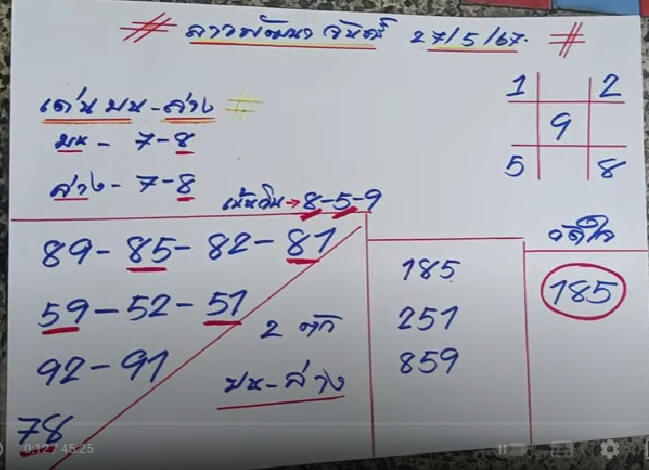 # ลาวพัฒนา จันทร์ 27/5/67. #
1 2
9
5 8
เด่น บน - ล่าง #
บน - 7-8
ล่าง - 7-8
เน้นวิ่น → 8-5-9
89 - 85 - 82 - 81
59 - 52 - 51
92 - 91
78
2 ตัว
บน - ล่าง
185
251
859
185
0:12 / 45:25